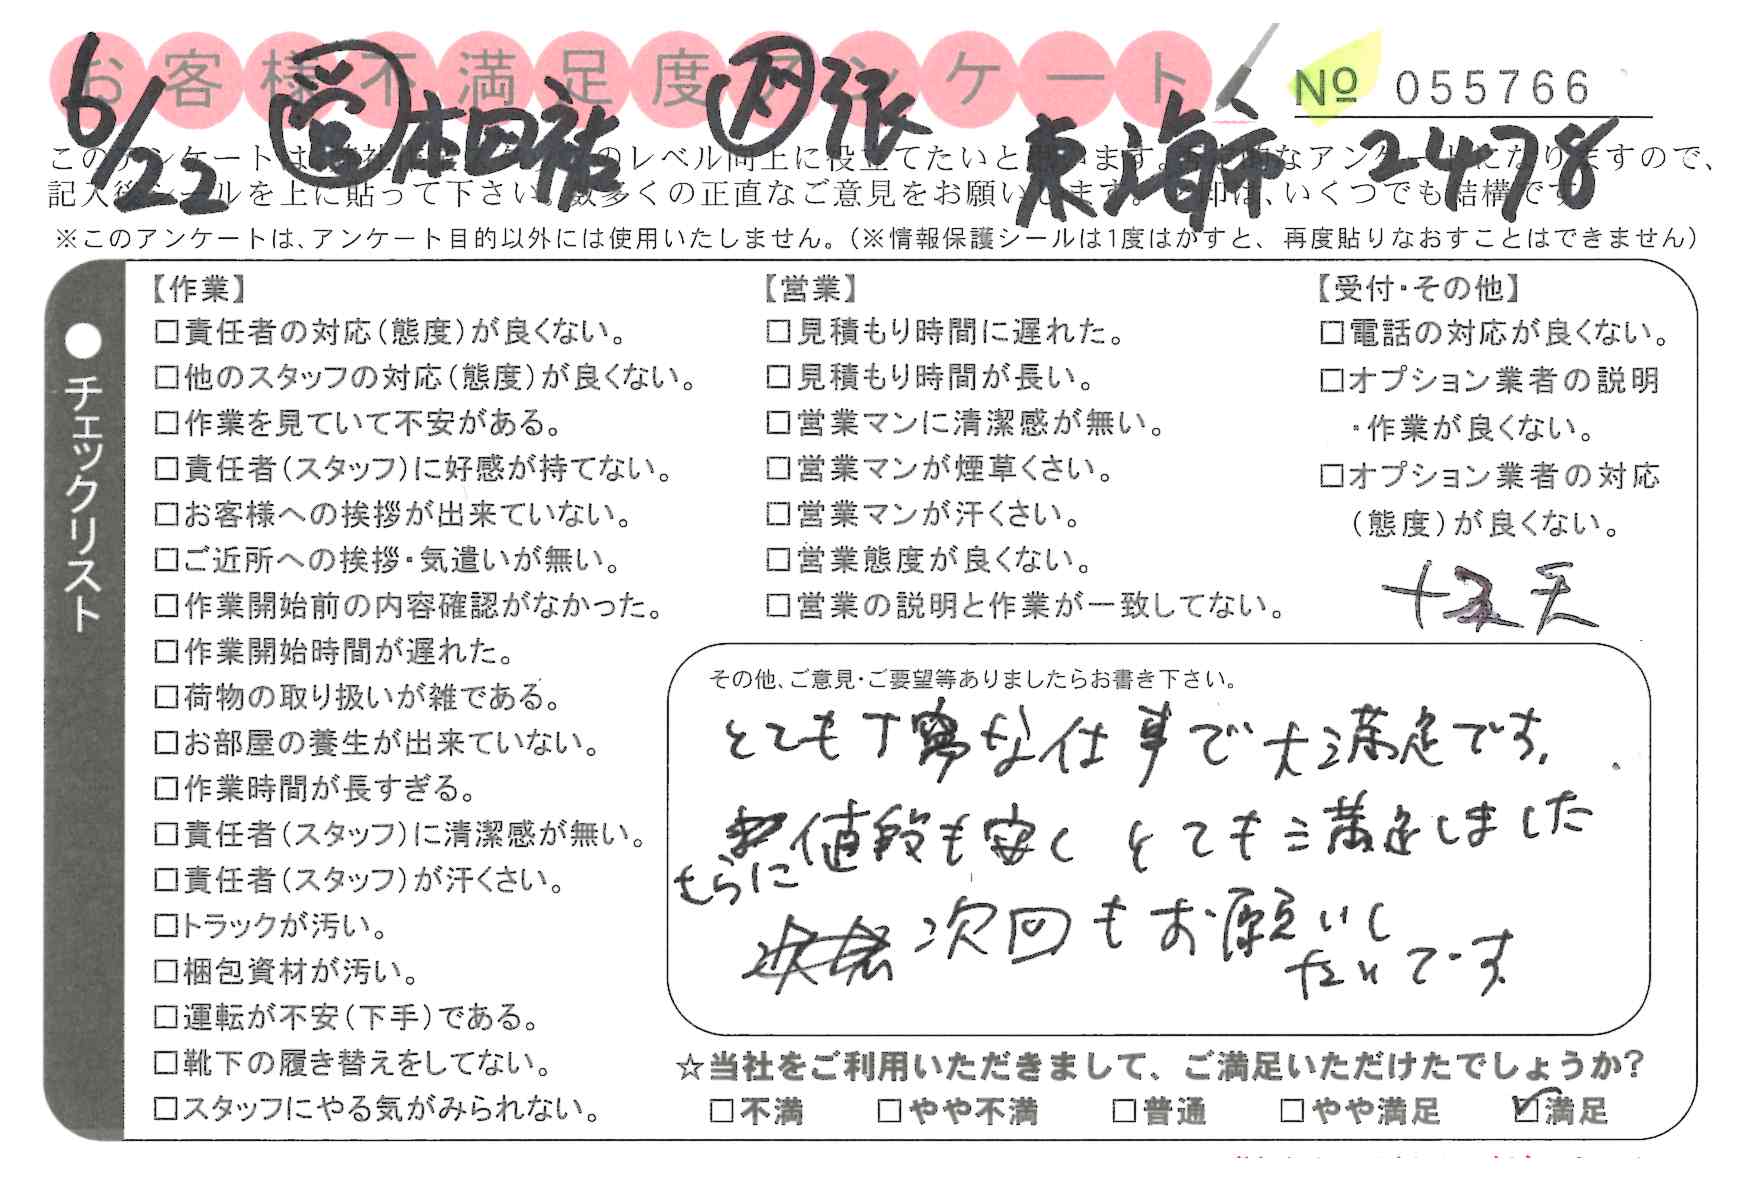 お客様不満足度アンケート
№ 055766
6/22 営 本田祐 又張 東海市 2478
このアンケートは、当社の引越サービスのレベル向上に役立てたいと思います。匿名的なアンケートになりますので、
記入後シールを上に貼って下さい。数多くの正直なご意見をお願いします。レ印は、いくつでも結構です。
※このアンケートは、アンケート目的以外には使用いたしません。(※情報保護シールは1度はがすと、再度貼りなおすことはできません)
●チェックリスト
【作業】
□責任者の対応(態度)が良くない。
□他のスタッフの対応(態度)が良くない。
□作業を見ていて不安がある。
□責任者(スタッフ)に好感が持てない。
□お客様への挨拶が出来ていない。
□ご近所への挨拶・気遣いが無い。
□作業開始前の内容確認がなかった。
□作業開始時間が遅れた。
□荷物の取り扱いが雑である。
□お部屋の養生が出来ていない。
□作業時間が長すぎる。
□責任者(スタッフ)に清潔感が無い。
□責任者(スタッフ)が汗くさい。
□トラックが汚い。
□梱包資材が汚い。
□運転が不安(下手)である。
□靴下の履き替えをしてない。
□スタッフにやる気がみられない。
【営業】
□見積もり時間に遅れた。
□見積もり時間が長い。
□営業マンに清潔感が無い。
□営業マンが煙草くさい。
□営業マンが汗くさい。
□営業態度が良くない。
□営業の説明と作業が一致してない。
【受付・その他】
□電話の対応が良くない。
□オプション業者の説明
・作業が良くない。
□オプション業者の対応
(態度)が良くない。
その他、ご意見・ご要望等ありましたらお書き下さい。
とても丁寧な仕事で大満足です。
さらに値段も安くとても満足しました
次回もお願いし
たいです
☆当社をご利用いただきまして、ご満足いただけたでしょうか?
□不満 □やや不満 □普通 □やや満足 ☑満足